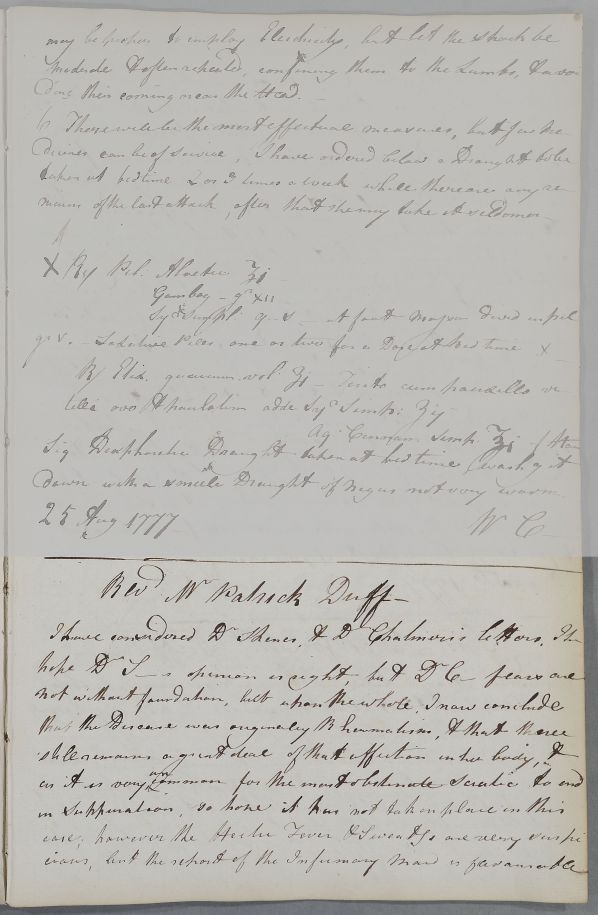 may be proper to employ Electricity, but let the shock be
moderate & often repeated, confining them to the Lumbs, & avoi
ding their coming near the Head. —
6 These will be the most effectual measures, but if me
dicines can be of service, I have ordered below a Draught to be
taken at bedtime 2 or 3 times a week while there are any re
mains of the last attack, after that she may take it seldomer
X Rx Pil. Aloetic ʒj
Gambog — gr XII
Syr Simpl. q. s — ft Massa divid in pil
gr v. — Laxative Pills one or two for a Dose at bed time X
Rx Elix. guaiacum vol ʒj — Tinto cum pauxillo vi
telli ovo & paulatim adde Syr Simp: ʒij
Aq: Cinnam. Simp. ℥j
Sig Diaphoretic Draught taken at bedtime & wash it
down with a small Draught of Negus not very warm.
25 Aug 1777 W C
Revd Mr Patrick Duff —
I have considered Dr Skenes, & Dr Chalmers's letters, I
hope Dr S—s opinion is right, but Dr C— fears are
not without foundation, but upon the whole I now conclude
that the Disease was originally Rheumatism, & that there
still remains a great deal of that affection in her body, &
as it is very uncommon for the most obstinate Sciatic to end
in suppuration, so hope it has not taken place in this
case; however the Hectic Fever & Sweats are very suspi
cious, but the report of the Infirmary Maid is favourable